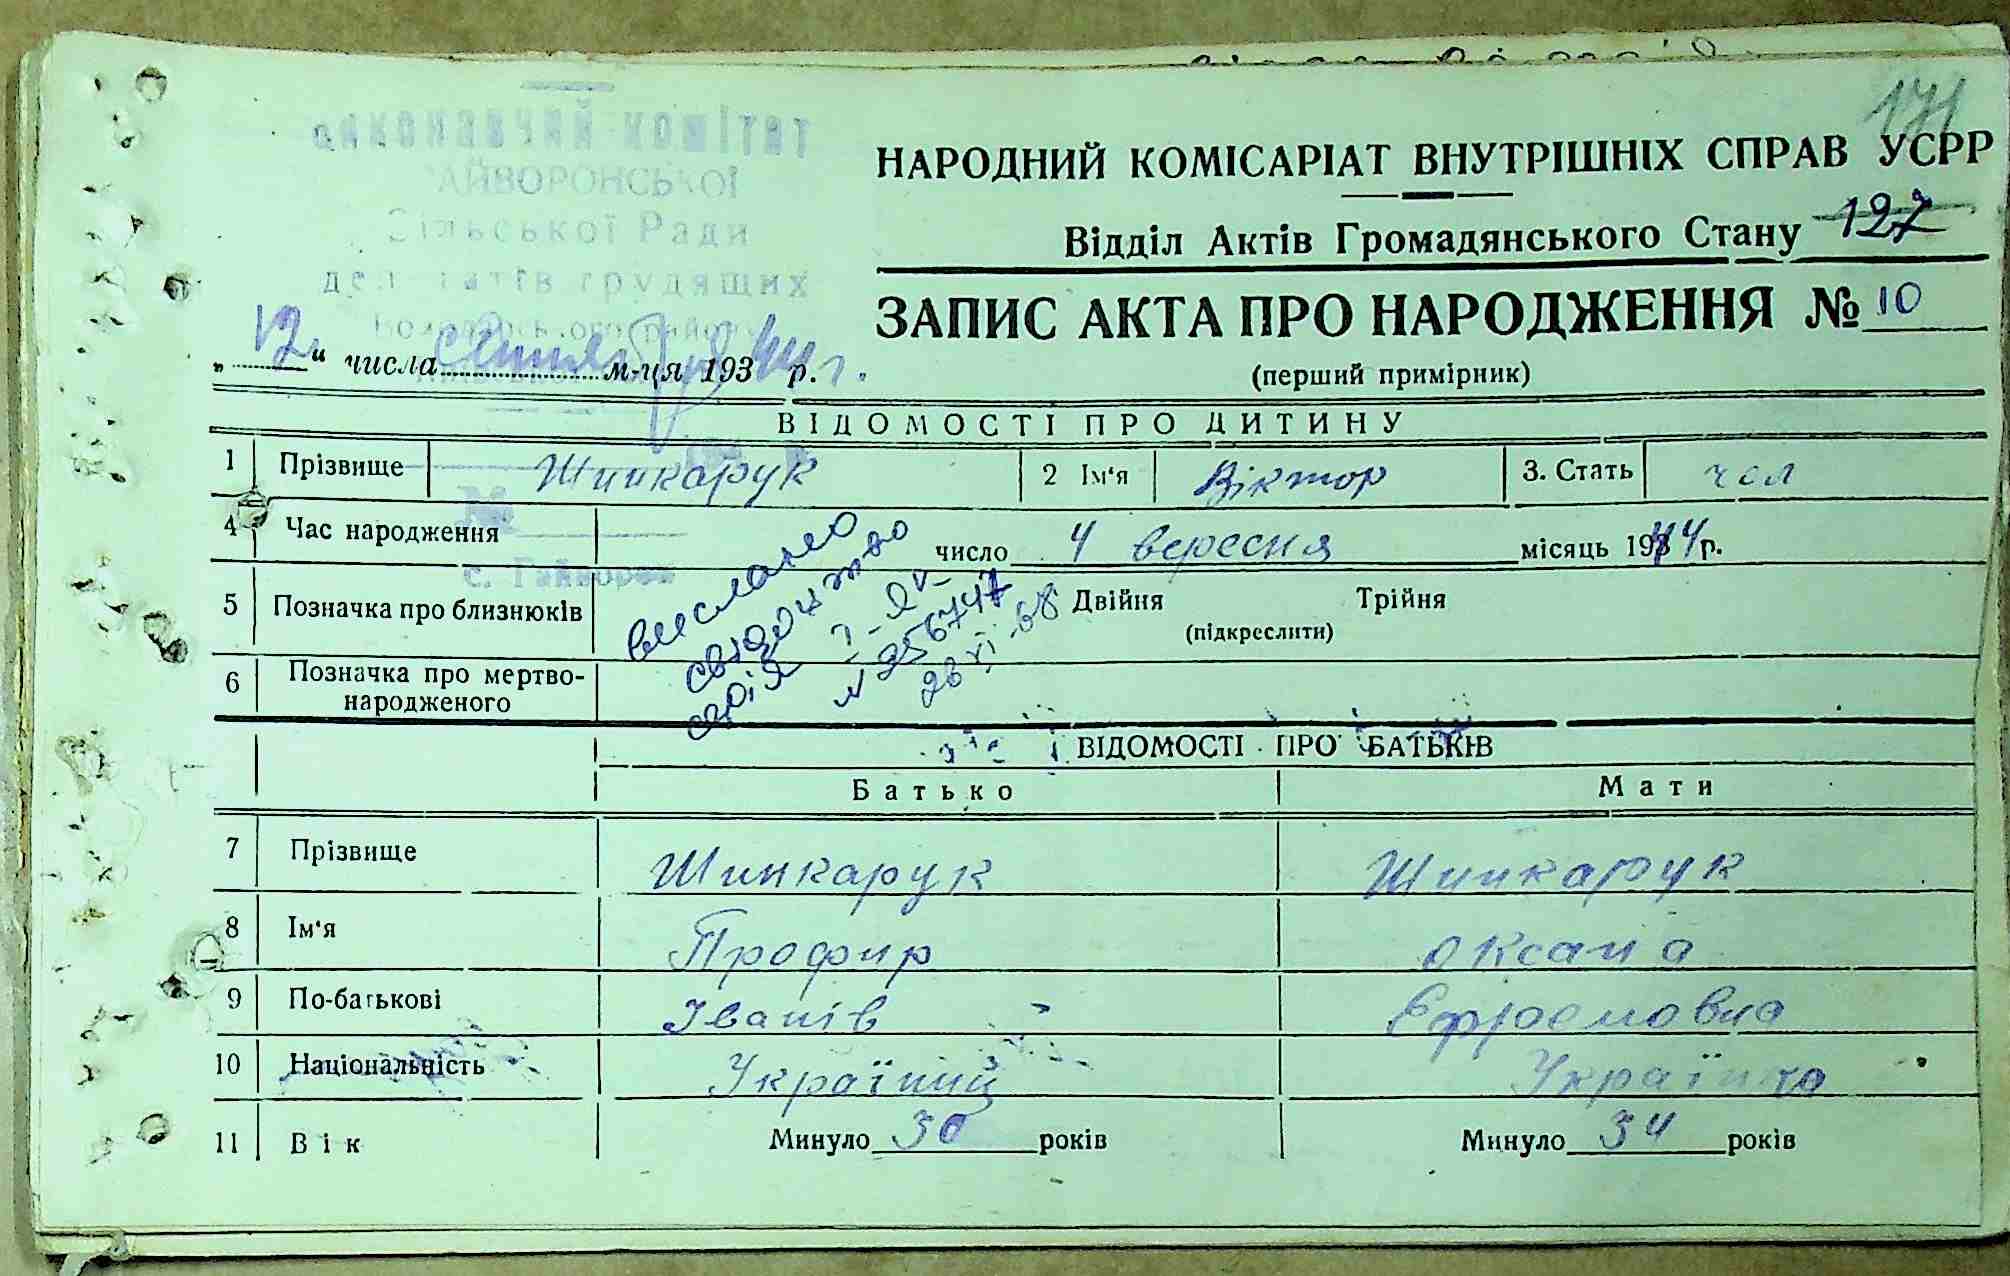 171
виконавчий комітет
НАРОДНИЙ КОМІСАРІАТ ВНУТРІШНІХ СПРАВ УСРР
АЙВОРОНСЬКОЇ
Сільської Ради
Відділ Актів Громадянського Стану 127
трудящих
ЗАПИС АКТА ПРО НАРОДЖЕННЯ № 10
„12“ числа сентября м-ця 193 44 р. г.
(перший примірник)
ВІДОМОСТІ ПРО ДИТИНУ
1 Прізвище Шинкарук 2 Ім'я Віктор 3. Стать чол
№
4 Час народження число 4 вересня місяць 1944 р.
с. Гайворон
5 Позначка про близнюків Двійня Трійня
(підкреслити)
вислано
свідоцтво
серія
№ 256747
26 VI-68
6 Позначка про мертво-
народженого
ВІДОМОСТІ ПРО БАТЬКІВ
Батько Мати
7 Прізвище Шинкарук Шинкарук
8 Ім'я Профир Оксана
9 По-батькові Іванів Ефроемовна
10 Національність Україниц Україінка
11 Вік Минуло 30 років Минуло 34 років